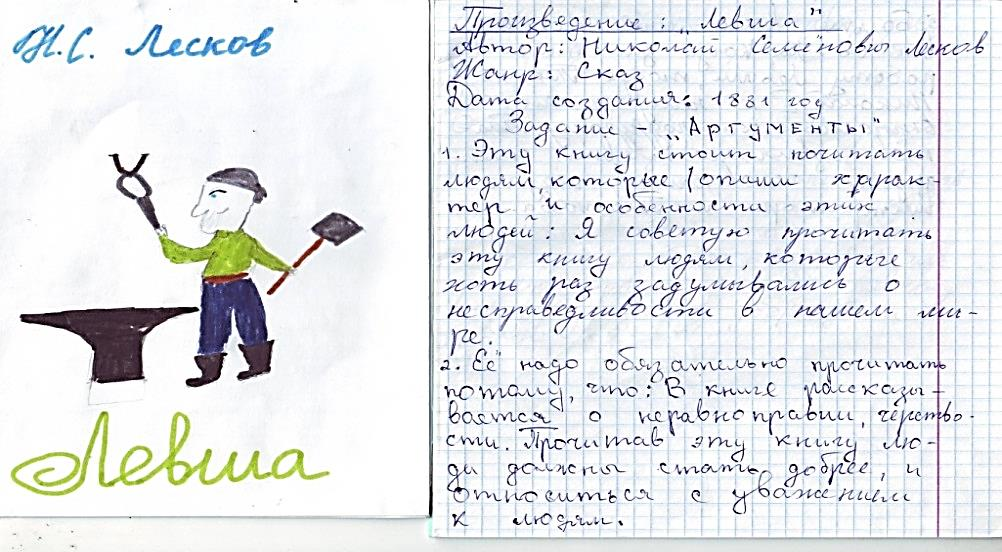 Н.С. Лесков
Левша
Произведение: „Левша"
Автор: Николай Семёнович Лесков
Жанр: Сказ
Дата создания: 1881 год
Задание - „Аргументы"
1. Эту книгу стоит почитать
людям, которые /опиши харак-
тер и особенности этих
людей: Я советую прочитать
эту книгу людям, которые
хоть раз задумывались о
несправедливости в нашем ми-
ре.
2. Её надо обязательно прочитать
потому, что: В книге рассказы-
вается о неравноправии, чёрство-
сти. Прочитав эту книгу лю-
ди должны стать добрее, и
относиться с уважением
к людям.